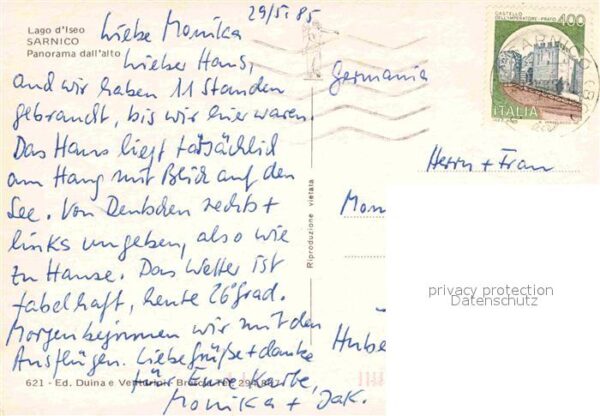 29/5.85
Lago d'Iseo
SARNICO
Panorama dall'alto
Liebe Monika
Lieber Hans,
auch wir haben 11 Stunden
gebraucht, bis wir hier waren.
Das Haus liegt tatsächlich
am Hang mit Blick auf den
See. Von Deutschen rechts +
links umgeben, also wie
zu Hause. Das Wetter ist
fabelhaft, heute 26 grad.
Morgen beginnen wir mit den
Ausflügen. Liebe Grüße + danke
für Eure Karte,
Monika + Jak.
621 - Ed. Duina e Venturini - Brescia Tel. 294.847
Riproduzione vietata
CASTELLO
DELL'IMPERATORE · PRATO
400
ITALIA
SARNICO
Germania
Herrn + Frau
Mon
Hube
privacy protection
Datenschutz